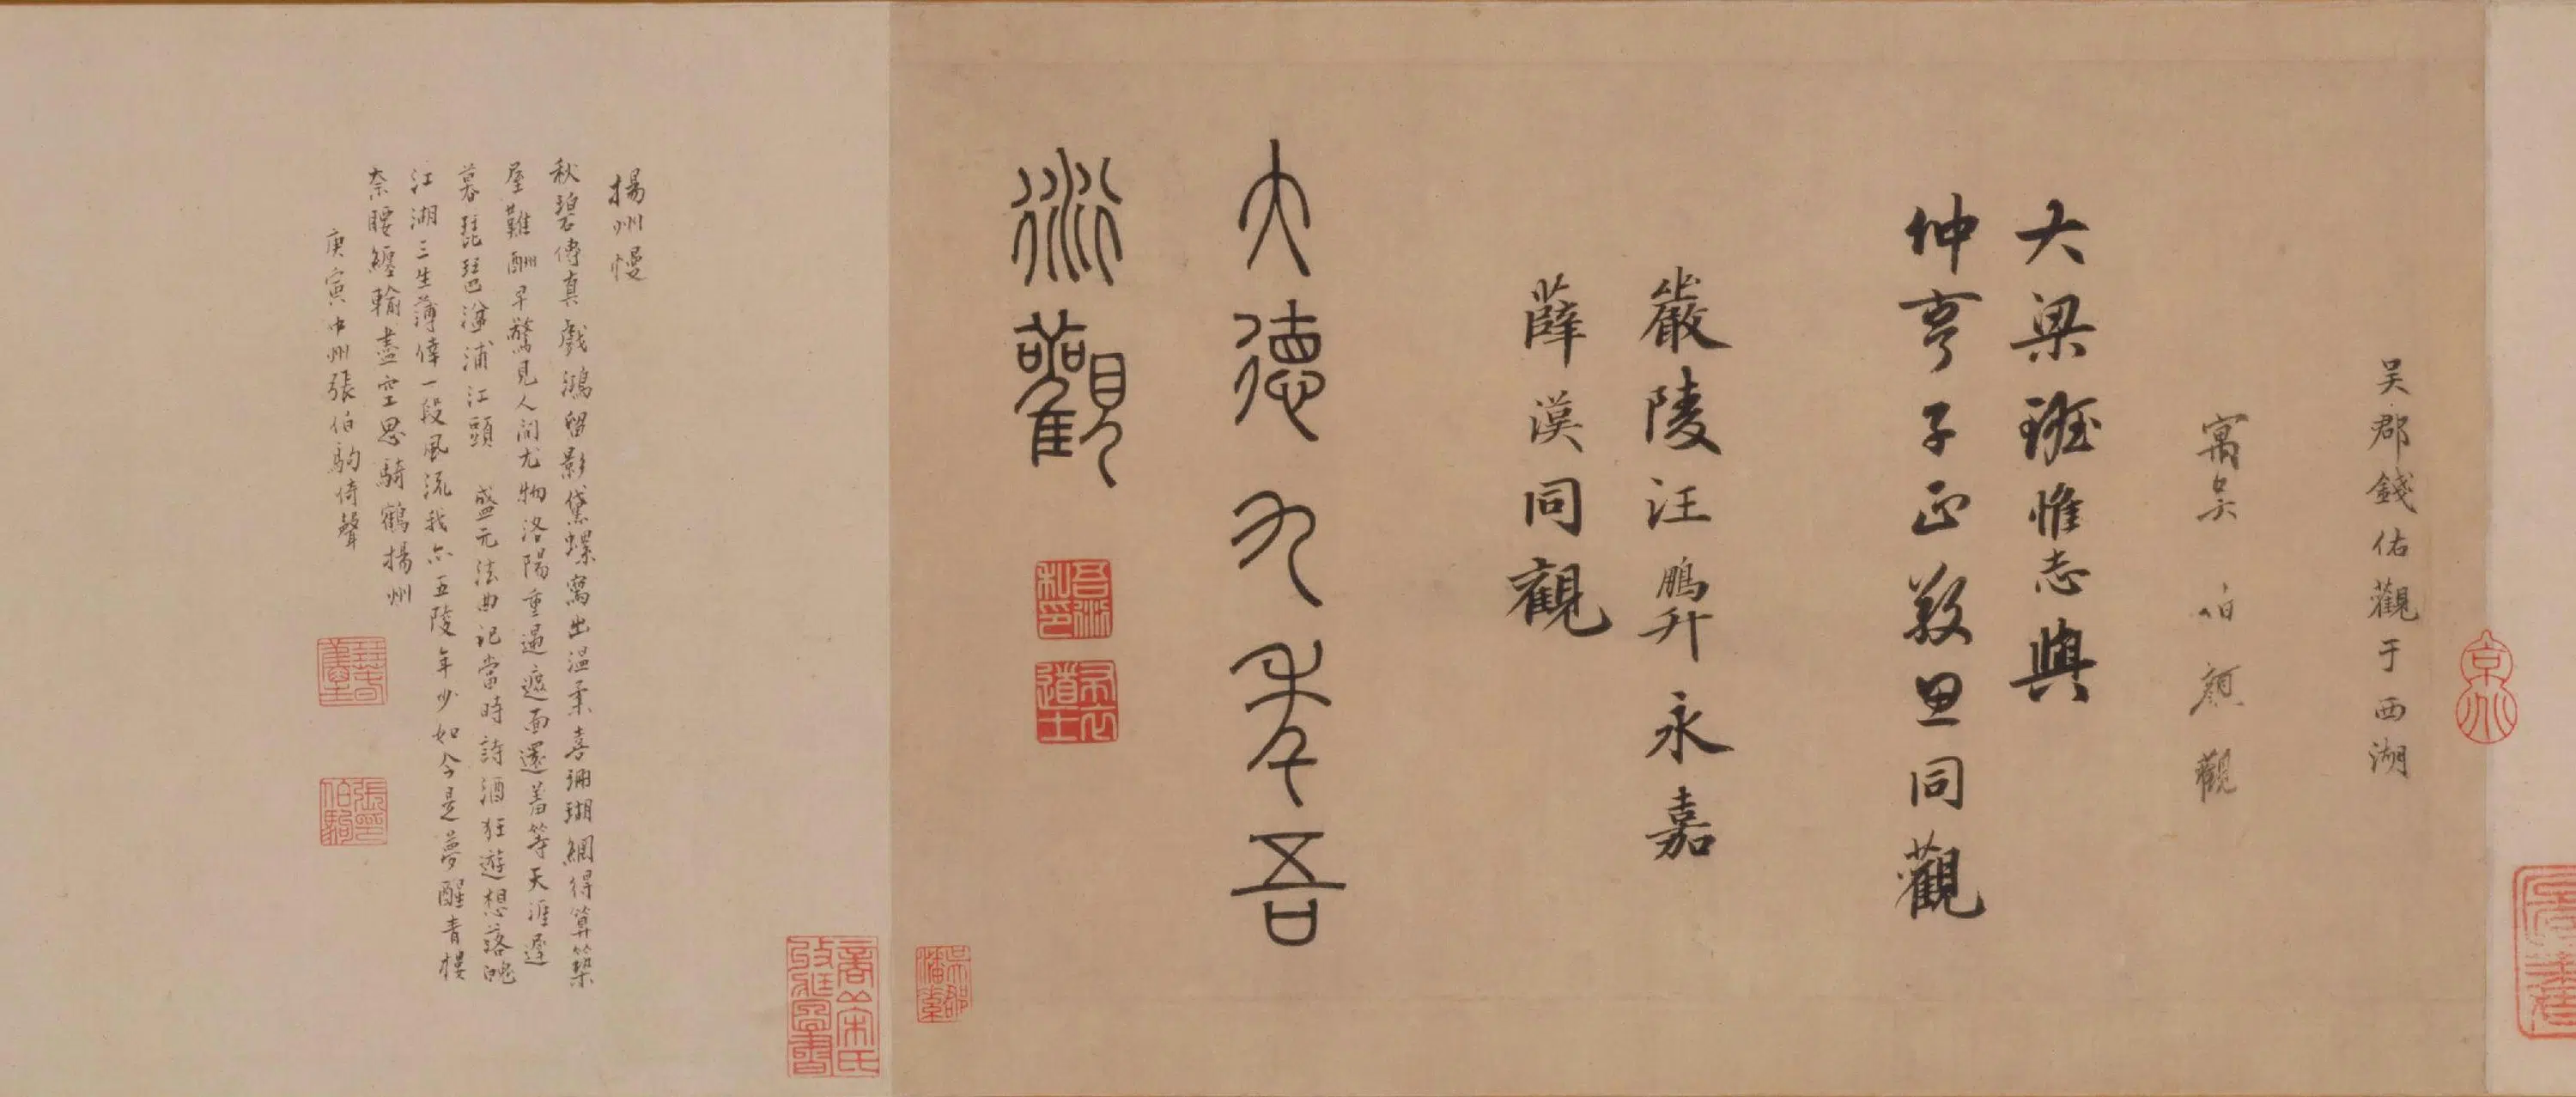 吴郡錢佑觀于西湖
寓吴伯顔觀
大梁班惟志與
仲亨子正敬思同觀
嚴陵汪鵬升永嘉
薛漢同觀
大德九年吾
衍觀
吾衍私印
布衣道士
吳郡
商丘宋氏收藏圖書
揚州慢
秋碧傳真戲鴻留影黛螺寫出温柔喜珊瑚網得算築
屋難酬早驚見人間尤物洛陽重遇遮面還羞等天涯遲
暮琵琶湓浦江頭 盛元法曲記當時詩酒狂遊想落魄
江湖三生薄倖一段風流我亦五陵年少如今是夢醒青樓
奈腰纏輸盡空思騎鶴揚州
庚寅中州張伯駒倚聲
張伯駒印